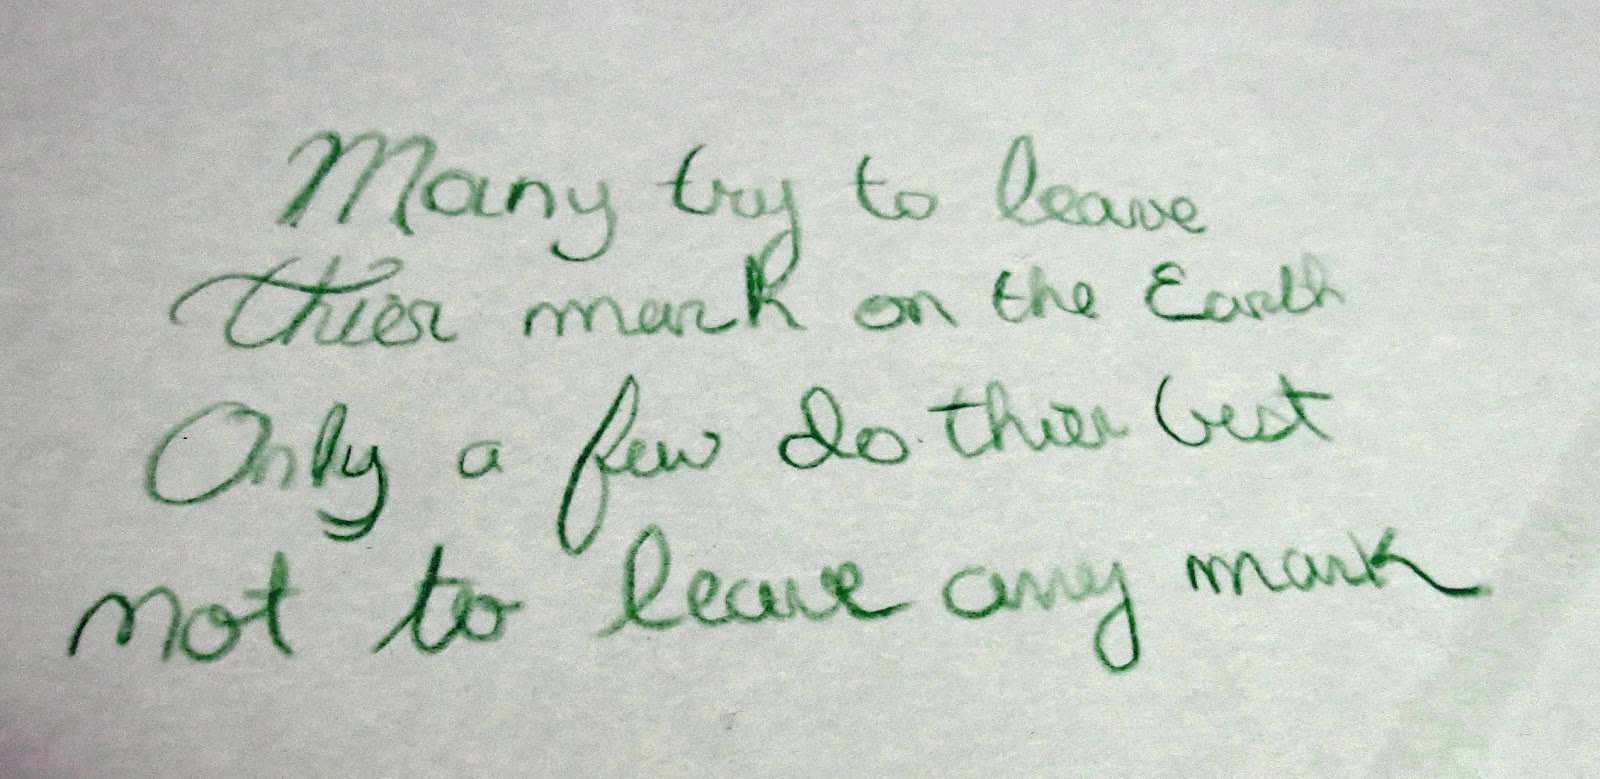 Many try to leave
thier mark on the Earth
Only a few do thier best
not to leave any mark